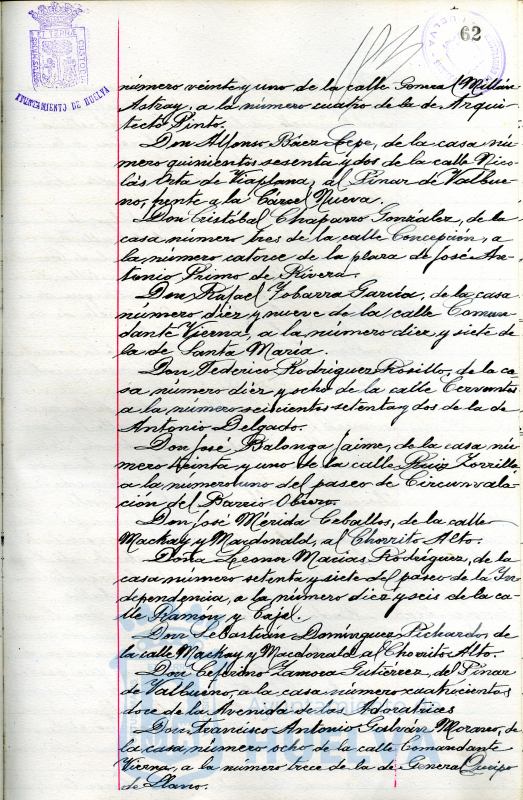 62
AYUNTAMIENTO DE HUELVA
número veinte y uno de la calle General Millán
Astray, a la número cuatro de la de Arqui-
tecto Pinto.
Don Alfonso Báez Lepe, de la casa nú-
mero quinientos sesenta y dos de la calle Nico-
lás Orta de Viaplana, al Pinar de Valbue-
no, frente a la Cárcel Nueva.
Don Cristóbal Chaparro González, de la
casa número tres de la calle Concepción, a
la número catorce de la plaza de José An-
tonio Primo de Rivera.
Don Rafael Ybarra García, de la casa
número diez y nueve de la calle Coman-
dante Vierna, a la número diez y siete de
la de Santa María.
Don Federico Rodríguez Rosillo, de la ca-
sa número diez y ocho de la calle Cervantes
a la número seiscientos setenta y dos de la de
Antonio Delgado.
Don José Balonga Jaime, de la casa nú-
mero treinta y uno de la calle Ruiz Zorrilla
a la número uno del paseo de Circunvala-
ción del Barrio Obrero.
Don José Mérida Ceballos, de la calle
Machay y Macdonald, al Chorrito Alto.
Doña Leonor Macías Rodríguez, de la
casa número setenta y siete del paseo de la In-
dependencia, a la número diez y seis de la ca-
lle Ramón y Cajal.
Don Sebastián Domínguez Pichardo, de
la calle Machay y Macdonald al Chorrito Alto.
Don Ceferino Zamora Gutiérrez, del Pinar
de Valbueno, a la casa número cuatrocientos
doce de la Avenida de las Adoratrices
Don Francisco Antonio Galván Moraro, de
la casa número ocho de la calle Comandante
Vierna, a la número trece de la de General Queipo
de Llano.